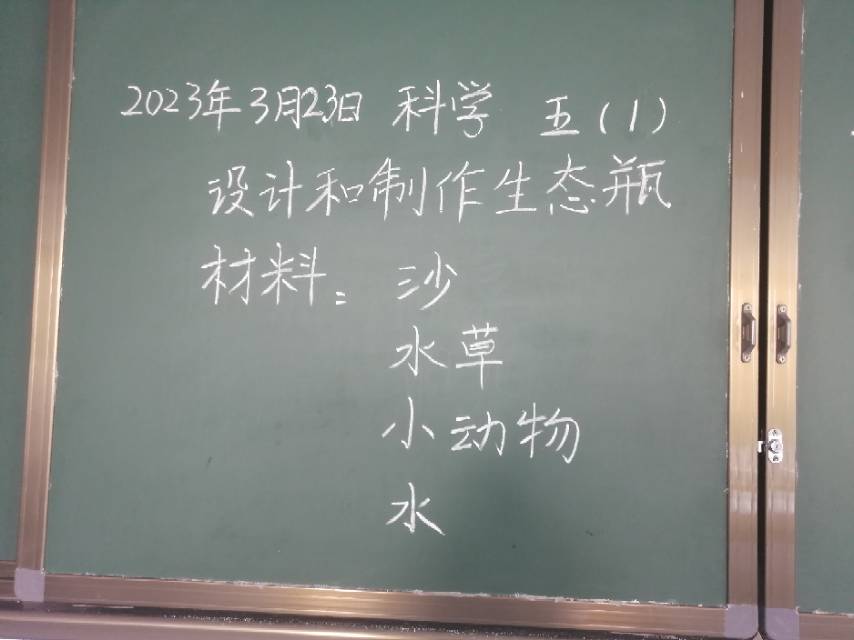 2023年3月23日 科学 五(1)
设计和制作生态瓶
材料：沙
水草
小动物
水